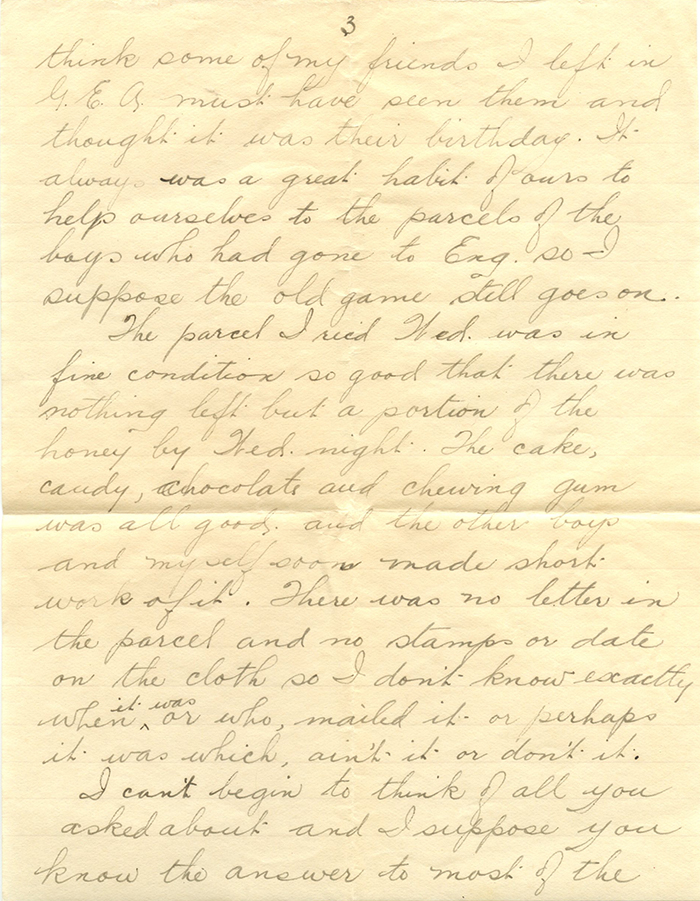 3
think some of my friends I left in
G. E. A. must have seen them and
thought it was their birthday. It
always was a great habit of ours to
help ourselves to the parcels of the
boys who had gone to Eng. so I
suppose the old game still goes on.
The parcel I rec'd Wed. was in
fine condition so good that there was
nothing left but a portion of the
honey by Wed. night. The cake,
candy, chocolate and chewing gum
was all good. and the other boys
and myself soon made short
work of it. There was no letter in
the parcel and no stamps or date
on the cloth so I don't know exactly
when it was or who, mailed it or perhaps
it was which, ain't it or don't it.
I can't begin to think of all you
asked about and I suppose you
know the answer to most of the